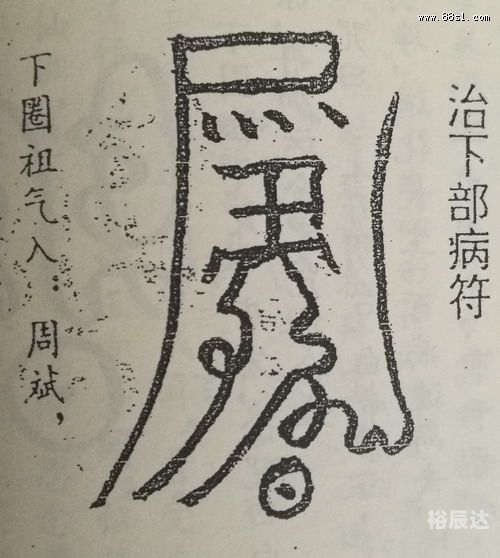 www.88s1.com
治下部病符
下圈祖气入：周斌，
裕辰达